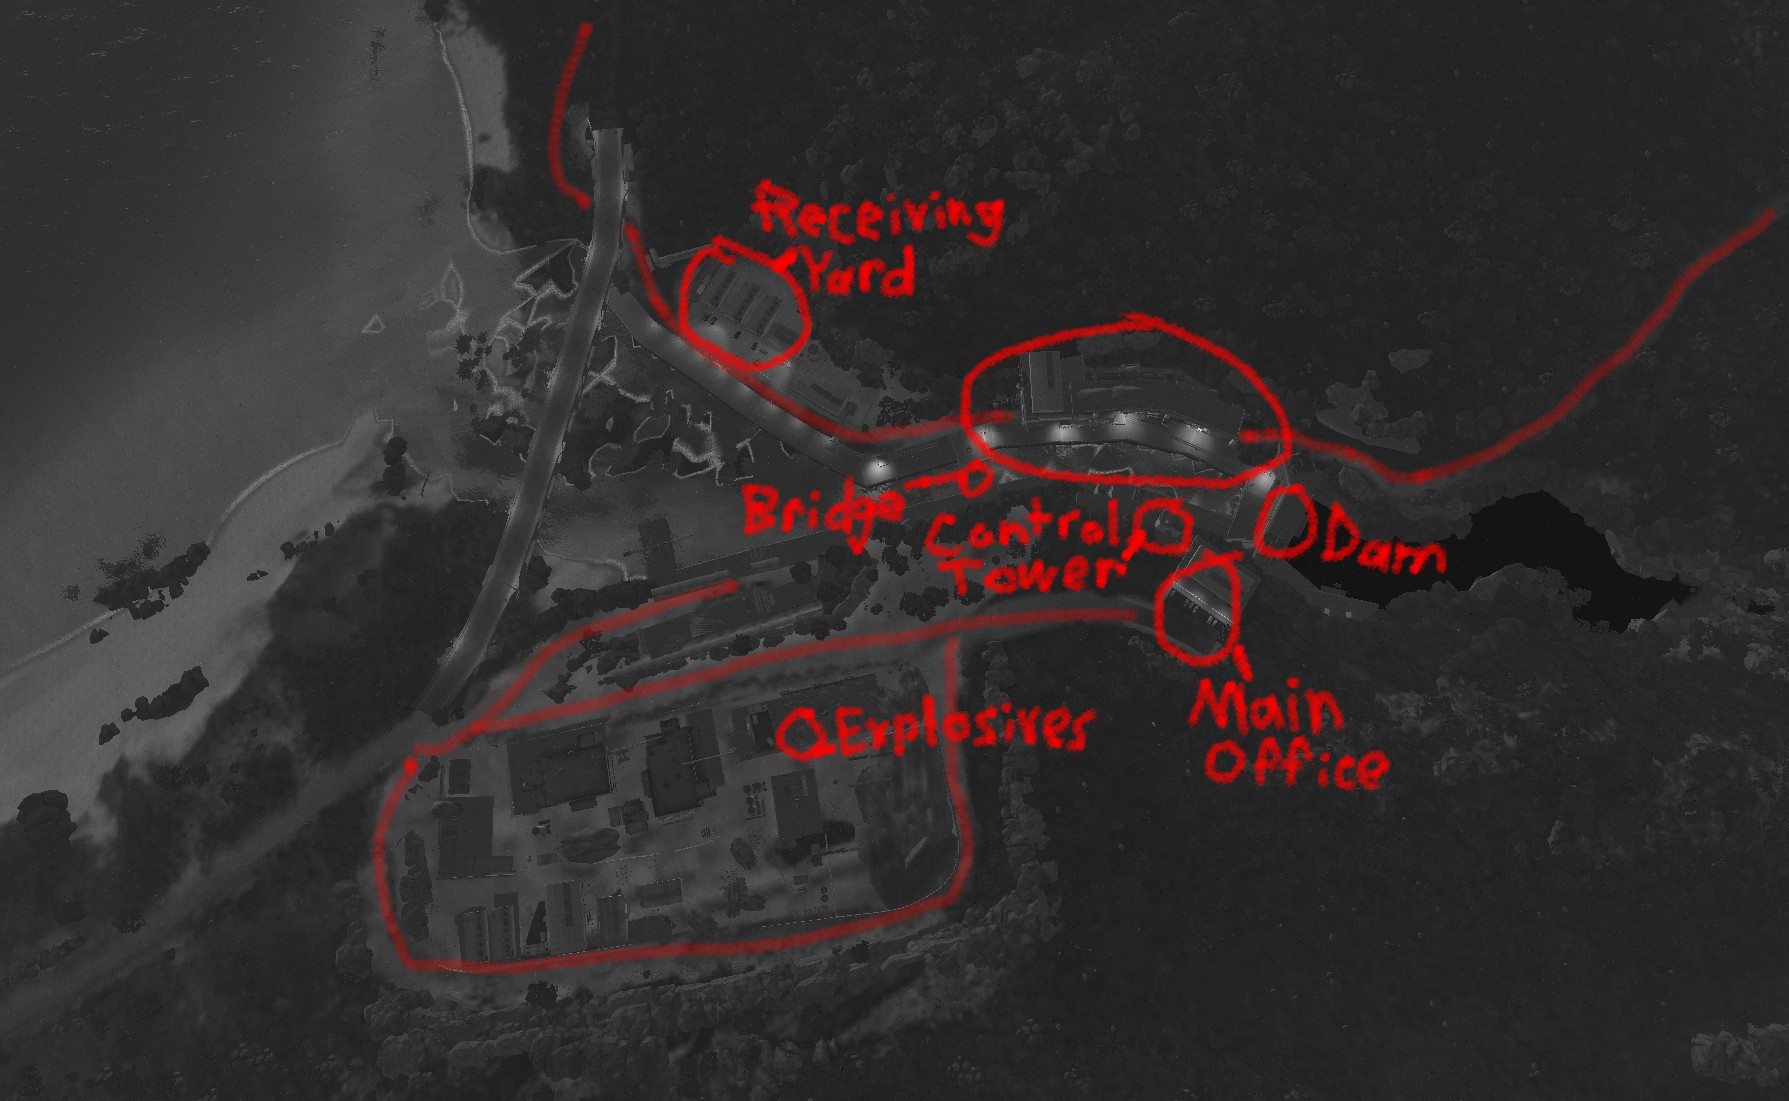 Receiving
Yard
Bridge
Control
Tower
Dam
Main
Office
Explosives